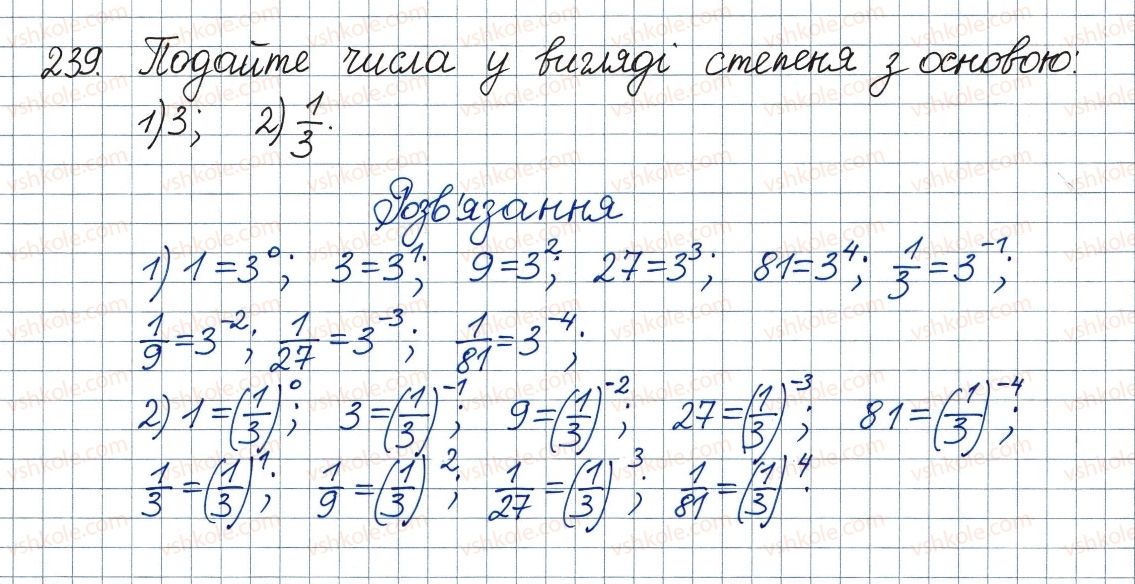 239. Подайте числа у вигляді степеня з основою:
1) 3; 2) 1/3.
Розв'язання
1) 1 = 3⁰; 3 = 3¹; 9 = 3²; 27 = 3³; 81 = 3⁴; 1/3 = 3⁻¹;
1/9 = 3⁻²; 1/27 = 3⁻³; 1/81 = 3⁻⁴;
2) 1 = (1/3)⁰; 3 = (1/3)⁻¹; 9 = (1/3)⁻²; 27 = (1/3)⁻³; 81 = (1/3)⁻⁴;
1/3 = (1/3)¹; 1/9 = (1/3)²; 1/27 = (1/3)³; 1/81 = (1/3)⁴.
vshkole.com